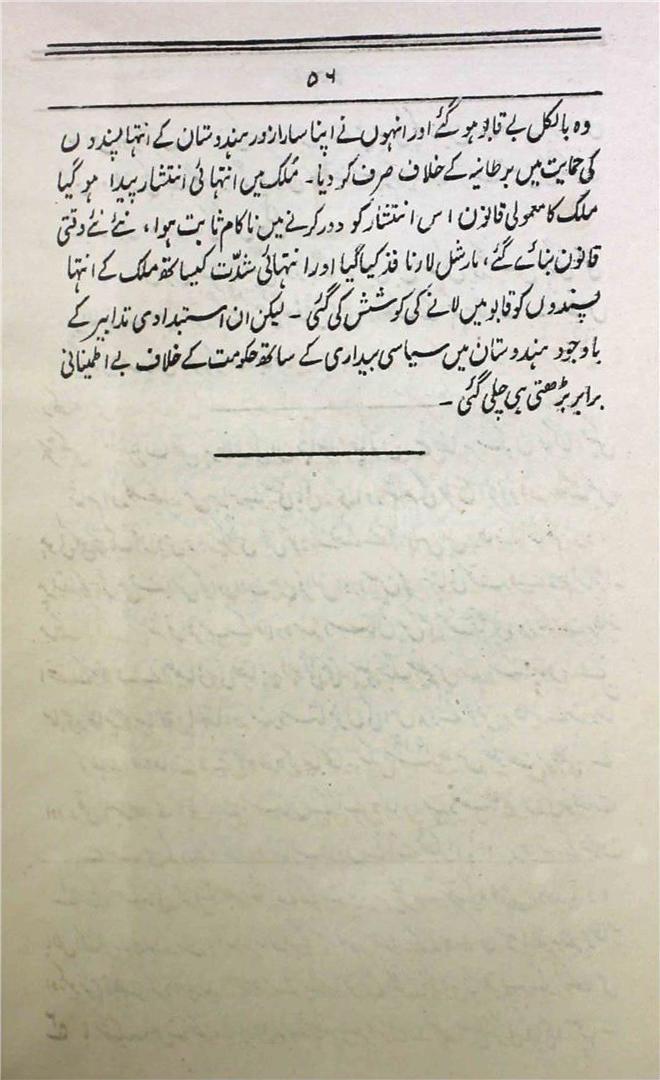 ۵۶
وہ بالکل بے قابو ہو گئے اور انہوں نے اپنا سارا زور ہندوستان کے انتہا پسندوں
کی حمایت میں برطانیہ کے خلاف صرف کر دیا۔ ملک میں انتہائی انتشار پیدا ہو گیا
ملک کا معمولی قانون اس انتشار کو دور کرنے میں ناکام ثابت ہوا، نئے نئے وقتی
قانون بنائے گئے، مارشل لا نافذ کیا گیا اور انتہائی شدّت کیساتھ ملک کے انتہا
پسندوں کو قابو میں لانے کی کوشش کی گئی ۔ لیکن ان استبدادی تدابیر کے
باوجود ہندوستان میں سیاسی بیداری کے ساتھ حکومت کے خلاف بے اطمینانی
برابر بڑھتی ہی چلی گئی ۔